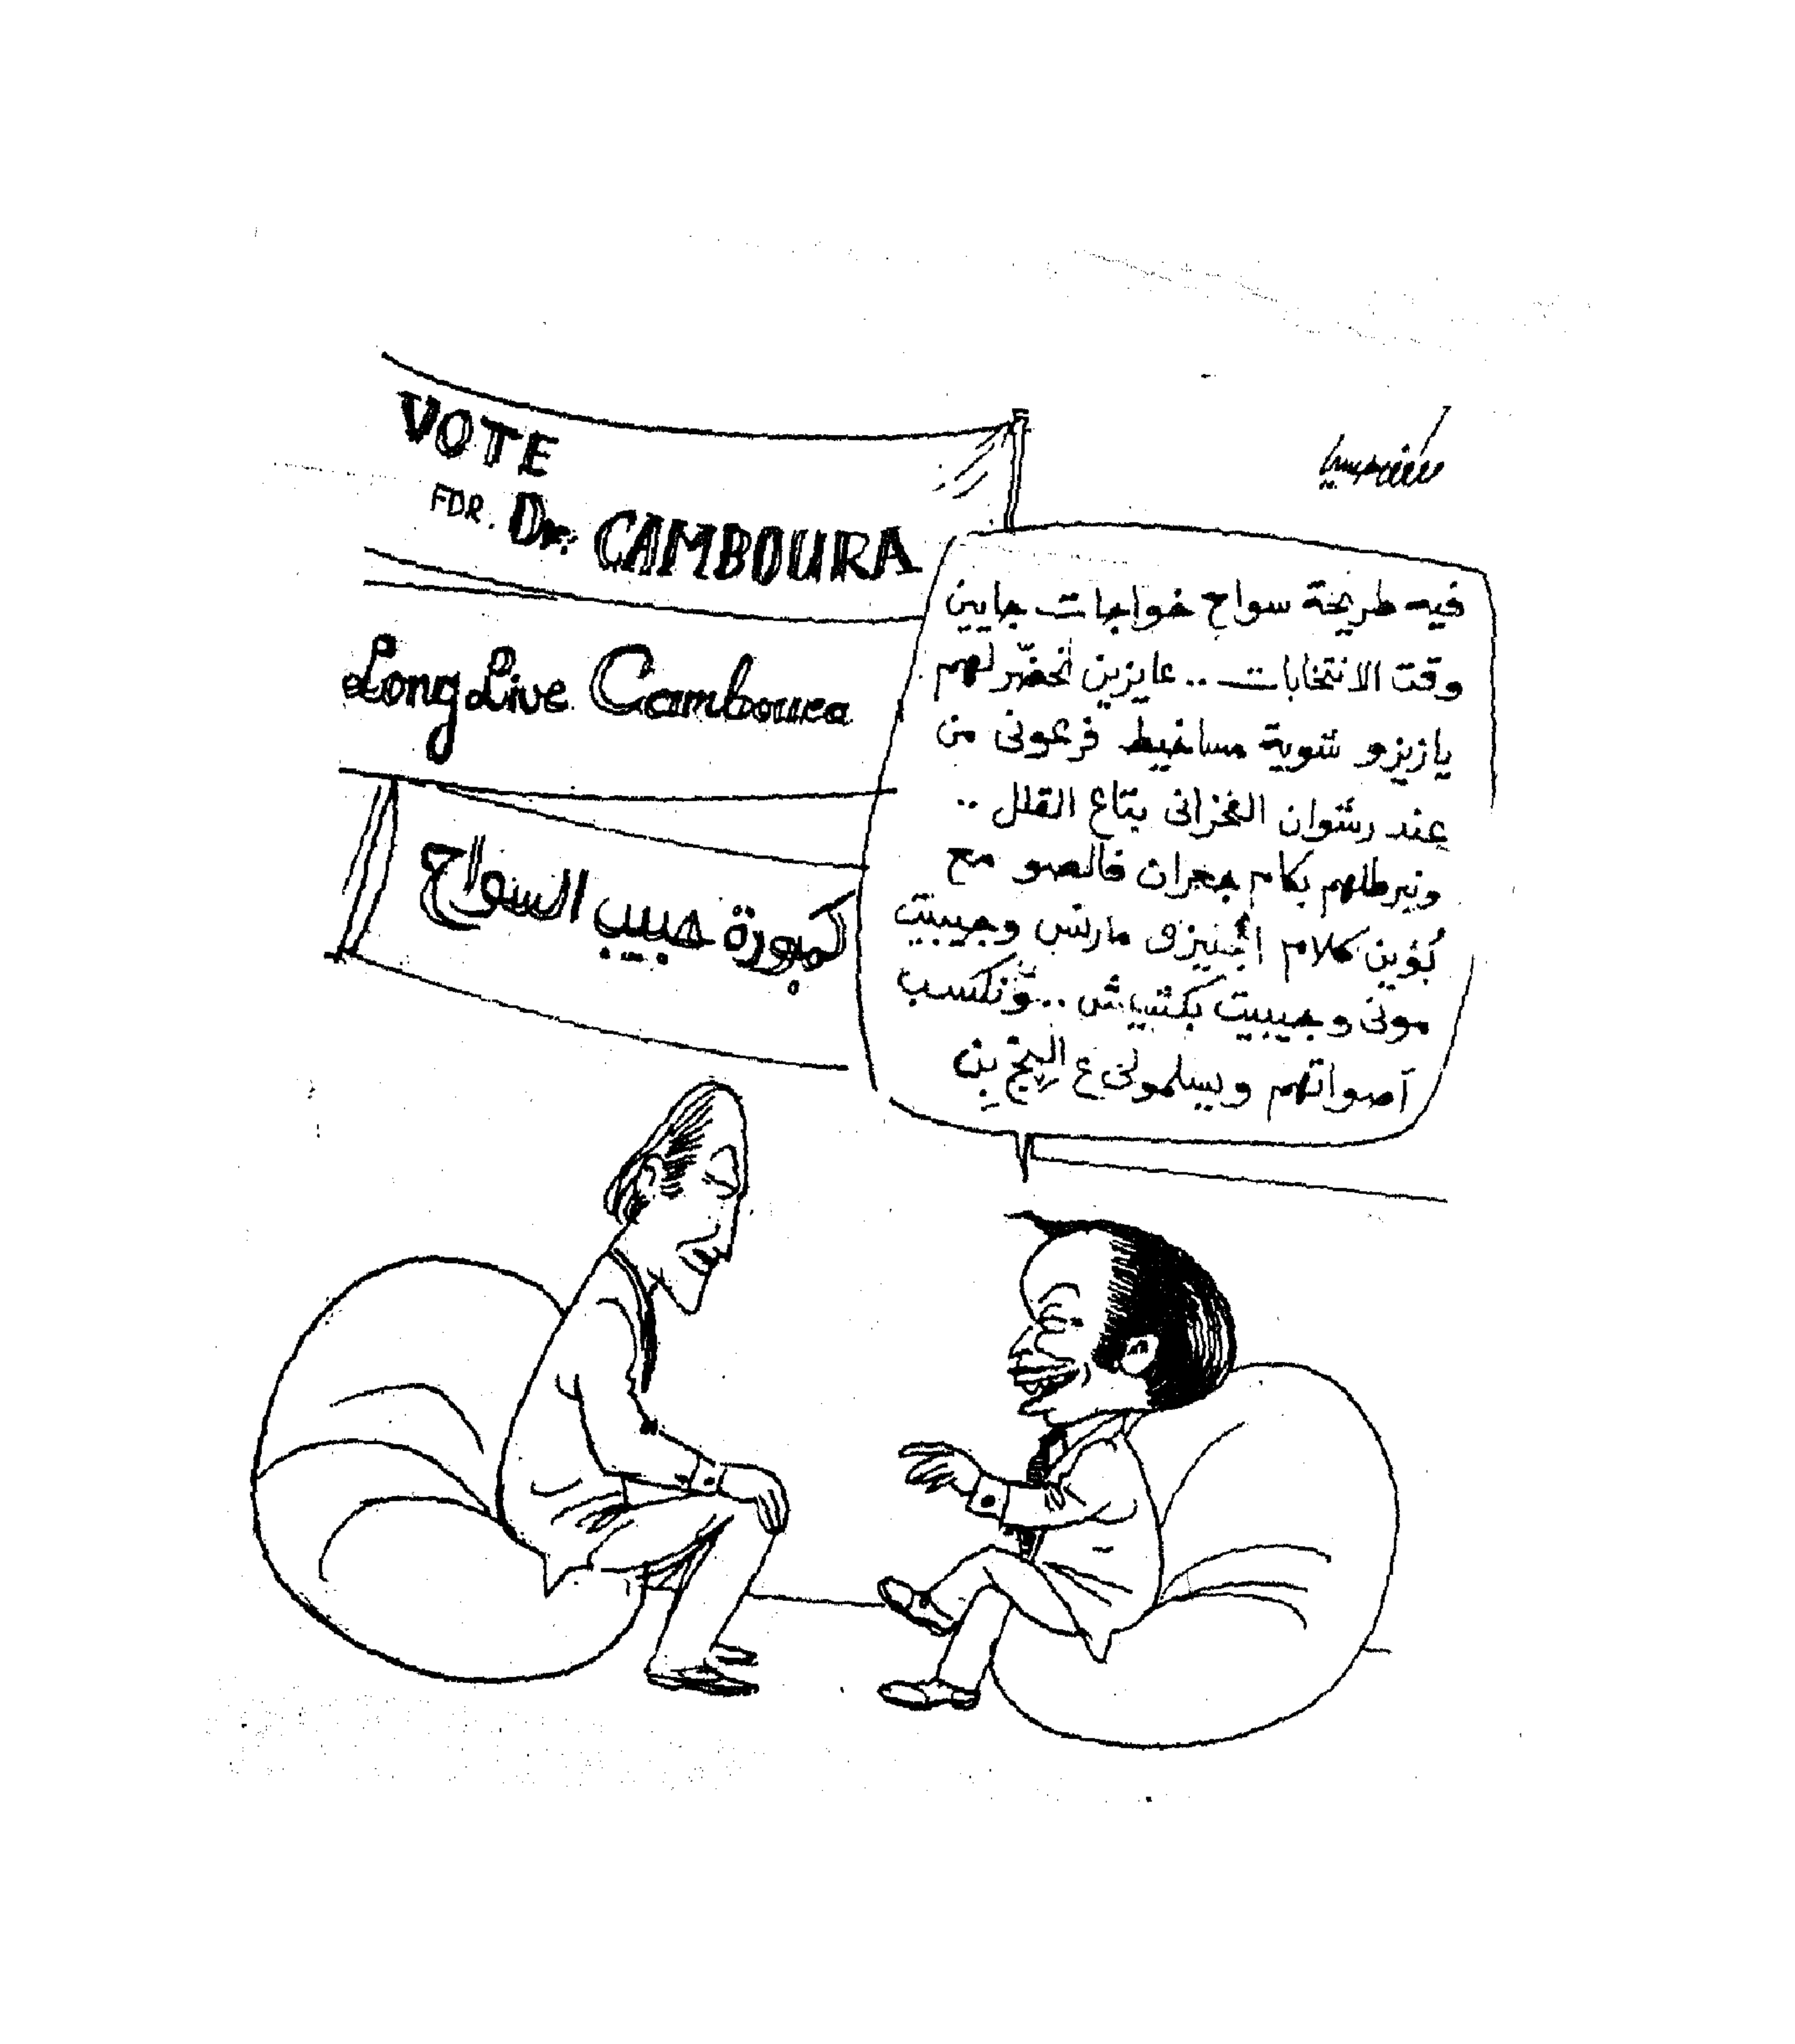 VOTE
FOR. Dr. CAMBOURA
Long Live Camboura
كمبورة حبيب السواح
فيه طريحة سواح خواجات جايين
وقت الانتخابات .. عايزين نحضّر لهم
يا زيزو شوية مساخيط فرعونى من
عند رشوان الفخرانى بتاع القلل ..
ونبرطلهم بكام جعران فالصو مع
كلام انجليزى مارتس وجيبيت
مونى وجيبيت بكشيش .. نكسب
أصواتهم ويسلمولى ع